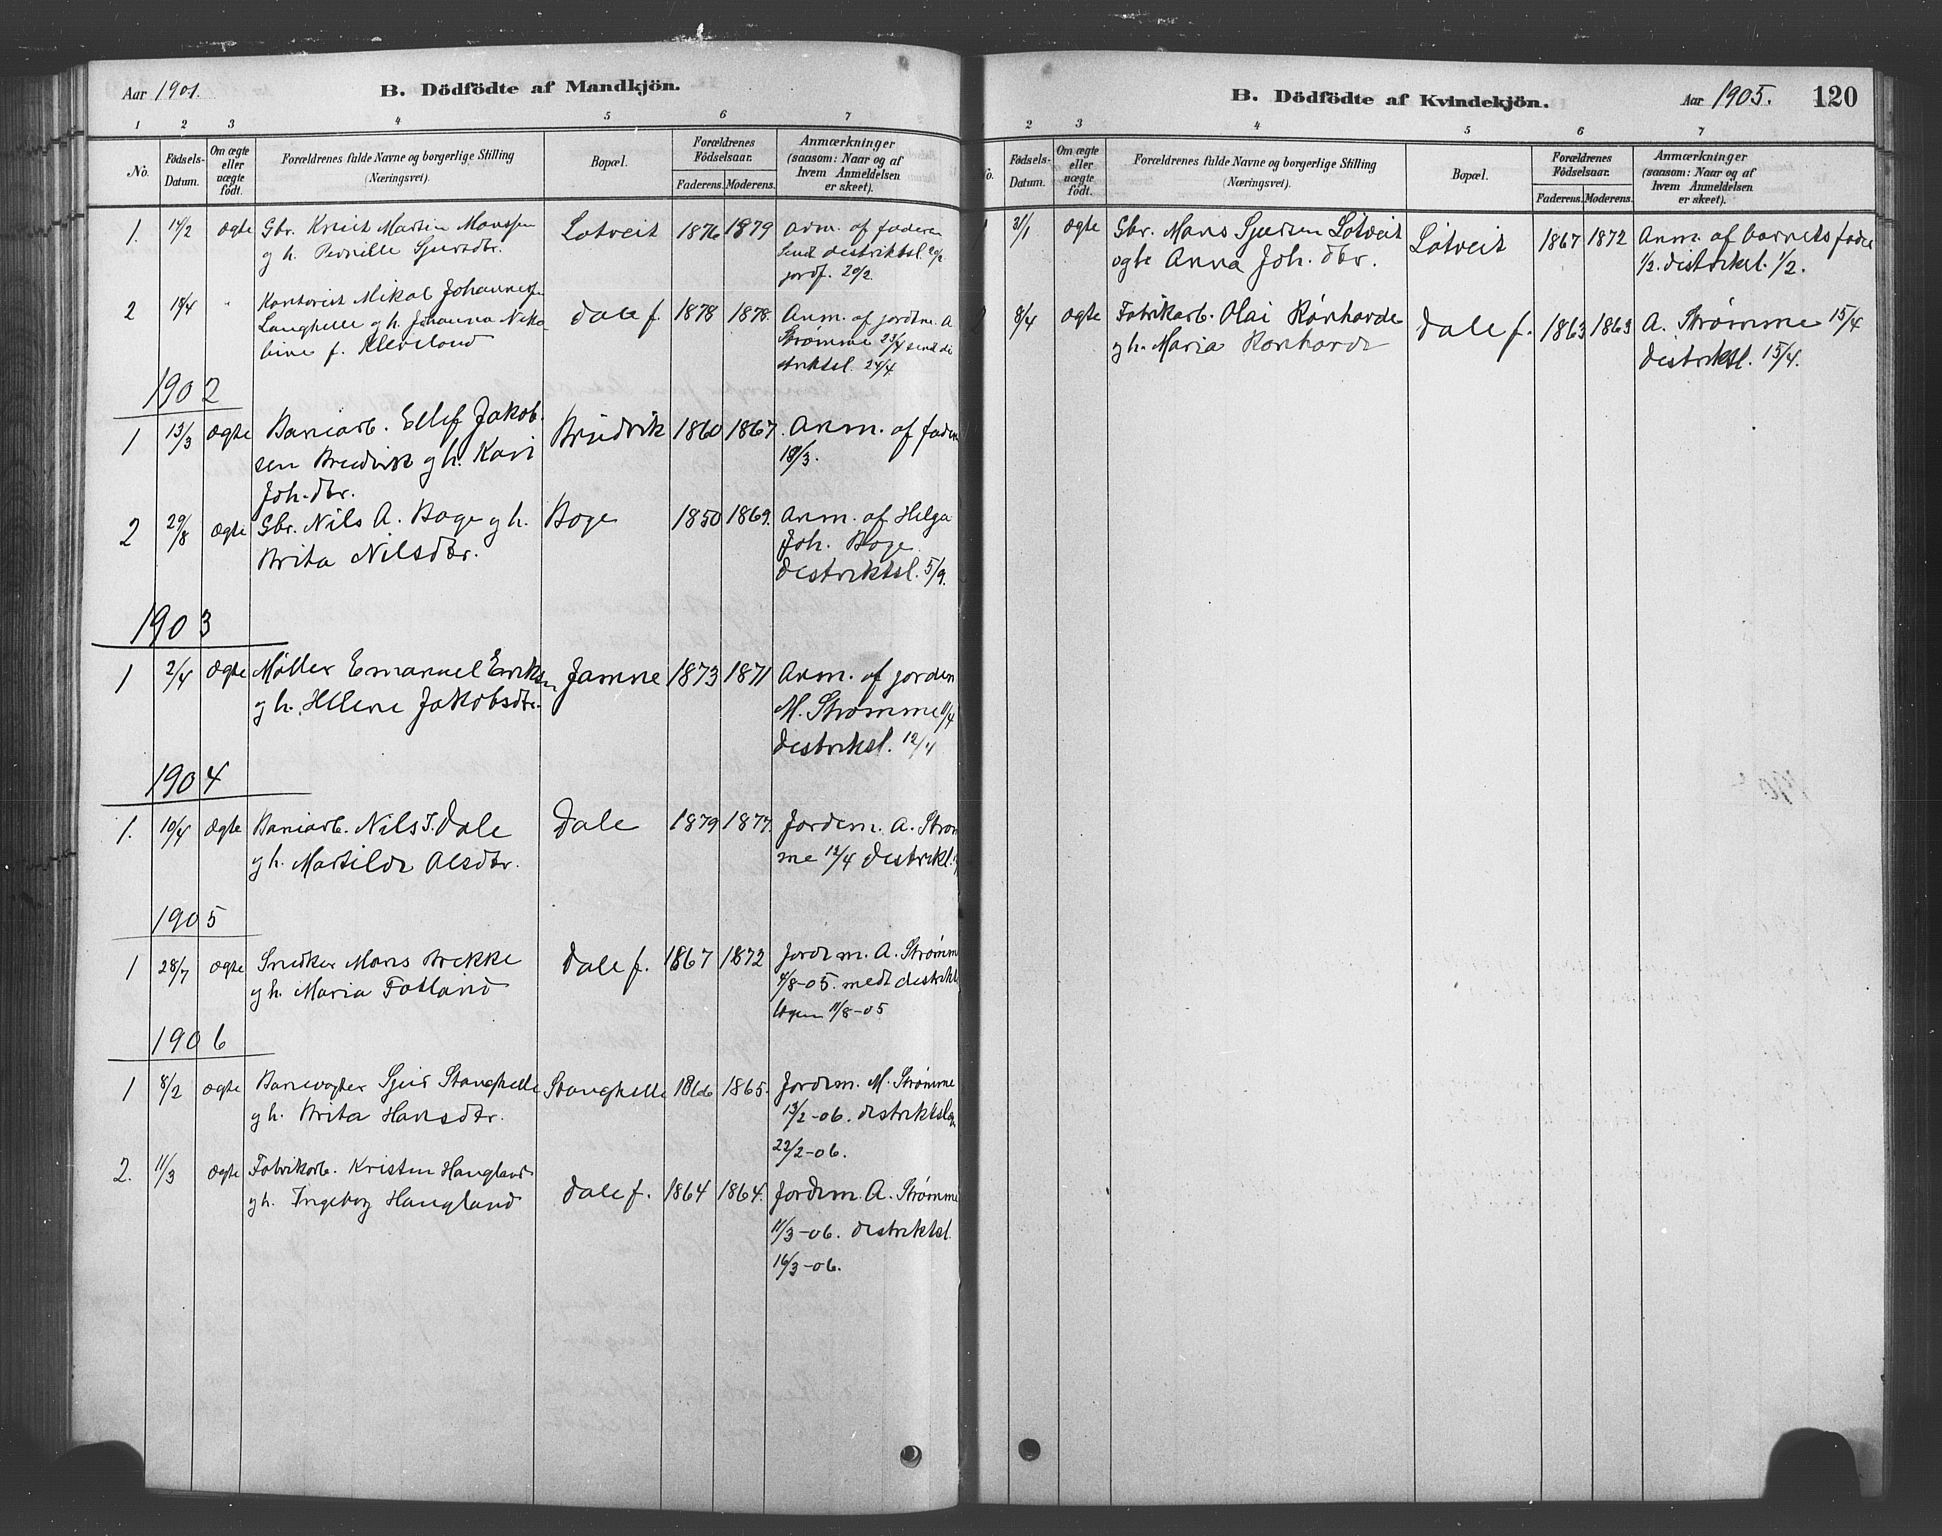 Aar 1901.
B. Dödfödte af Mandkjön.
1 2 3 4 5 6 7
No. Födsels-Datum. Om ægte eller uægte födt. Forældrenes fulde Navne og borgerlige Stilling (Næringsvei). Bopæl. Forældrenes Födselsaar. Faderens. Moderens. Anmærkninger (saasom: Naar og af hvem Anmeldelsen er skeet).
1. 14/2 ægte Gbr. Knut Martin Monssen Lotveit 1876 1879 Anm. af faderen
g h. Pernille Sjursdtr. Sendt distriktsl. 20/2
jordf. 20/2
2 18/4 " Kontorist Mikal Johannesen Dale f. 1878 1878. Anm. af jordm. A
Langhelle g h. Johanna Niko Strømme 23/4 sendt di
line f. Kleveland striktsl. 24/4
1902
1 13/3 ægte Baniarb. Ellef Jakob Bruvik 1860 1867. Anm. af faderen
sen Bruvik g h. Kari 18/3.
Joh.dtr.
2 29/8 ægte Gbr. Nils A. Boge g h. Boge 1850 1869. Anm. af Helga
Brita Nilsdtr. Joh. Boge
distriktsl. 5/9.
1903
1 2/4 ægte Møller Emanuel Eriksen Jamne 1873 1871 Anm. af jordem
g h. Helene Jakobsdtr. M. Strømme 11/4
distriksl. 12/4
1904
1. 10/4 ægte Baniarb. Nils J. Dale Dale 1879 1877. Jordem. A. Strøm
g h. Martilde Olsdtr. me 12/4 distrikl.
1905
1 28/7 ægte Snedker Mons Brekke Dale f. 1867 1872 Jordem. A. Strømm
g h. Maria Fotland 4/8-05. medt distrikts
lægen 11/8-05
1906
1 8/2 ægte Banevogter Sjur Stanghelle Stanghelle 1866 1865. Jordem. M. Strømme
g h. Brita Hansdtr. 13/2-06. distriktslæg
22/2-06.
2. 11/3 ægte Fabrikarb. Kristen Haugland Dale f. 1864 1864. Jordem. A. Strømme
g h. Ingeborg Haugland 11/3-06. distriktsl.
16/3-06.
B. Dödfödte af Kvindekjön.
Aar 1905. 120
2 3 4 5 6 7
No. Födsels-Datum. Om ægte eller uægte födt. Forældrenes fulde Navne og borgerlige Stilling (Næringsvei). Bopæl. Forældrenes Födselsaar. Faderens. Moderens. Anmærkninger (saasom: Naar og af hvem Anmeldelsen er skeet).
1 31/1 ægte Gbr. Mons Sjursen Lotveit Lotveit 1867 1872 Anm. af barnets fader
ogte Anna Joh. dtr. 1/2. distriksl. 1/2.
2 8/4 ægte Fabrikarb. Olai Rønhovde Dale f. 1863 1863 A. Strømme 15/4
g h. Maria Ronhovde distriksl. 15/4.